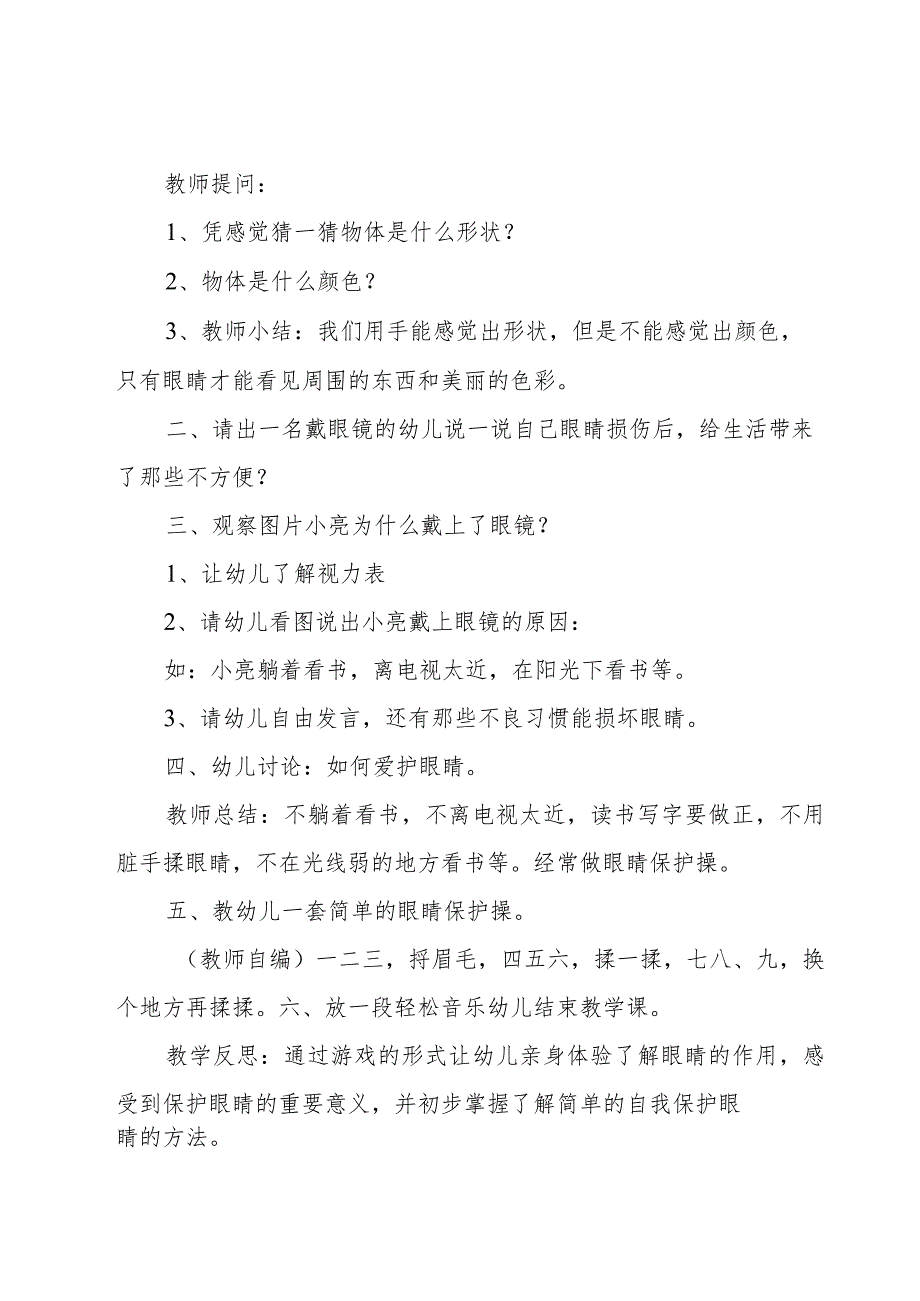 教师提问：
1、凭感觉猜一猜物体是什么形状？
2、物体是什么颜色？
3、教师小结：我们用手能感觉出形状，但是不能感觉出颜色，
只有眼睛才能看见周围的东西和美丽的色彩。
二、请出一名戴眼镜的幼儿说一说自己眼睛损伤后，给生活带来
了那些不方便？
三、观察图片小亮为什么戴上了眼镜？
1、让幼儿了解视力表
2、请幼儿看图说出小亮戴上眼镜的原因：
如：小亮躺着看书，离电视太近，在阳光下看书等。
3、请幼儿自由发言，还有那些不良习惯能损坏眼睛。
四、幼儿讨论：如何爱护眼睛。
教师总结：不躺着看书，不离电视太近，读书写字要做正，不用
脏手揉眼睛，不在光线弱的地方看书等。经常做眼睛保护操。
五、教幼儿一套简单的眼睛保护操。
（教师自编）一二三，捋眉毛，四五六，揉一揉，七八、九，换
个地方再揉揉。六、放一段轻松音乐幼儿结束教学课。
教学反思：通过游戏的形式让幼儿亲身体验了解眼睛的作用，感
受到保护眼睛的重要意义，并初步掌握了解简单的自我保护眼
睛的方法。